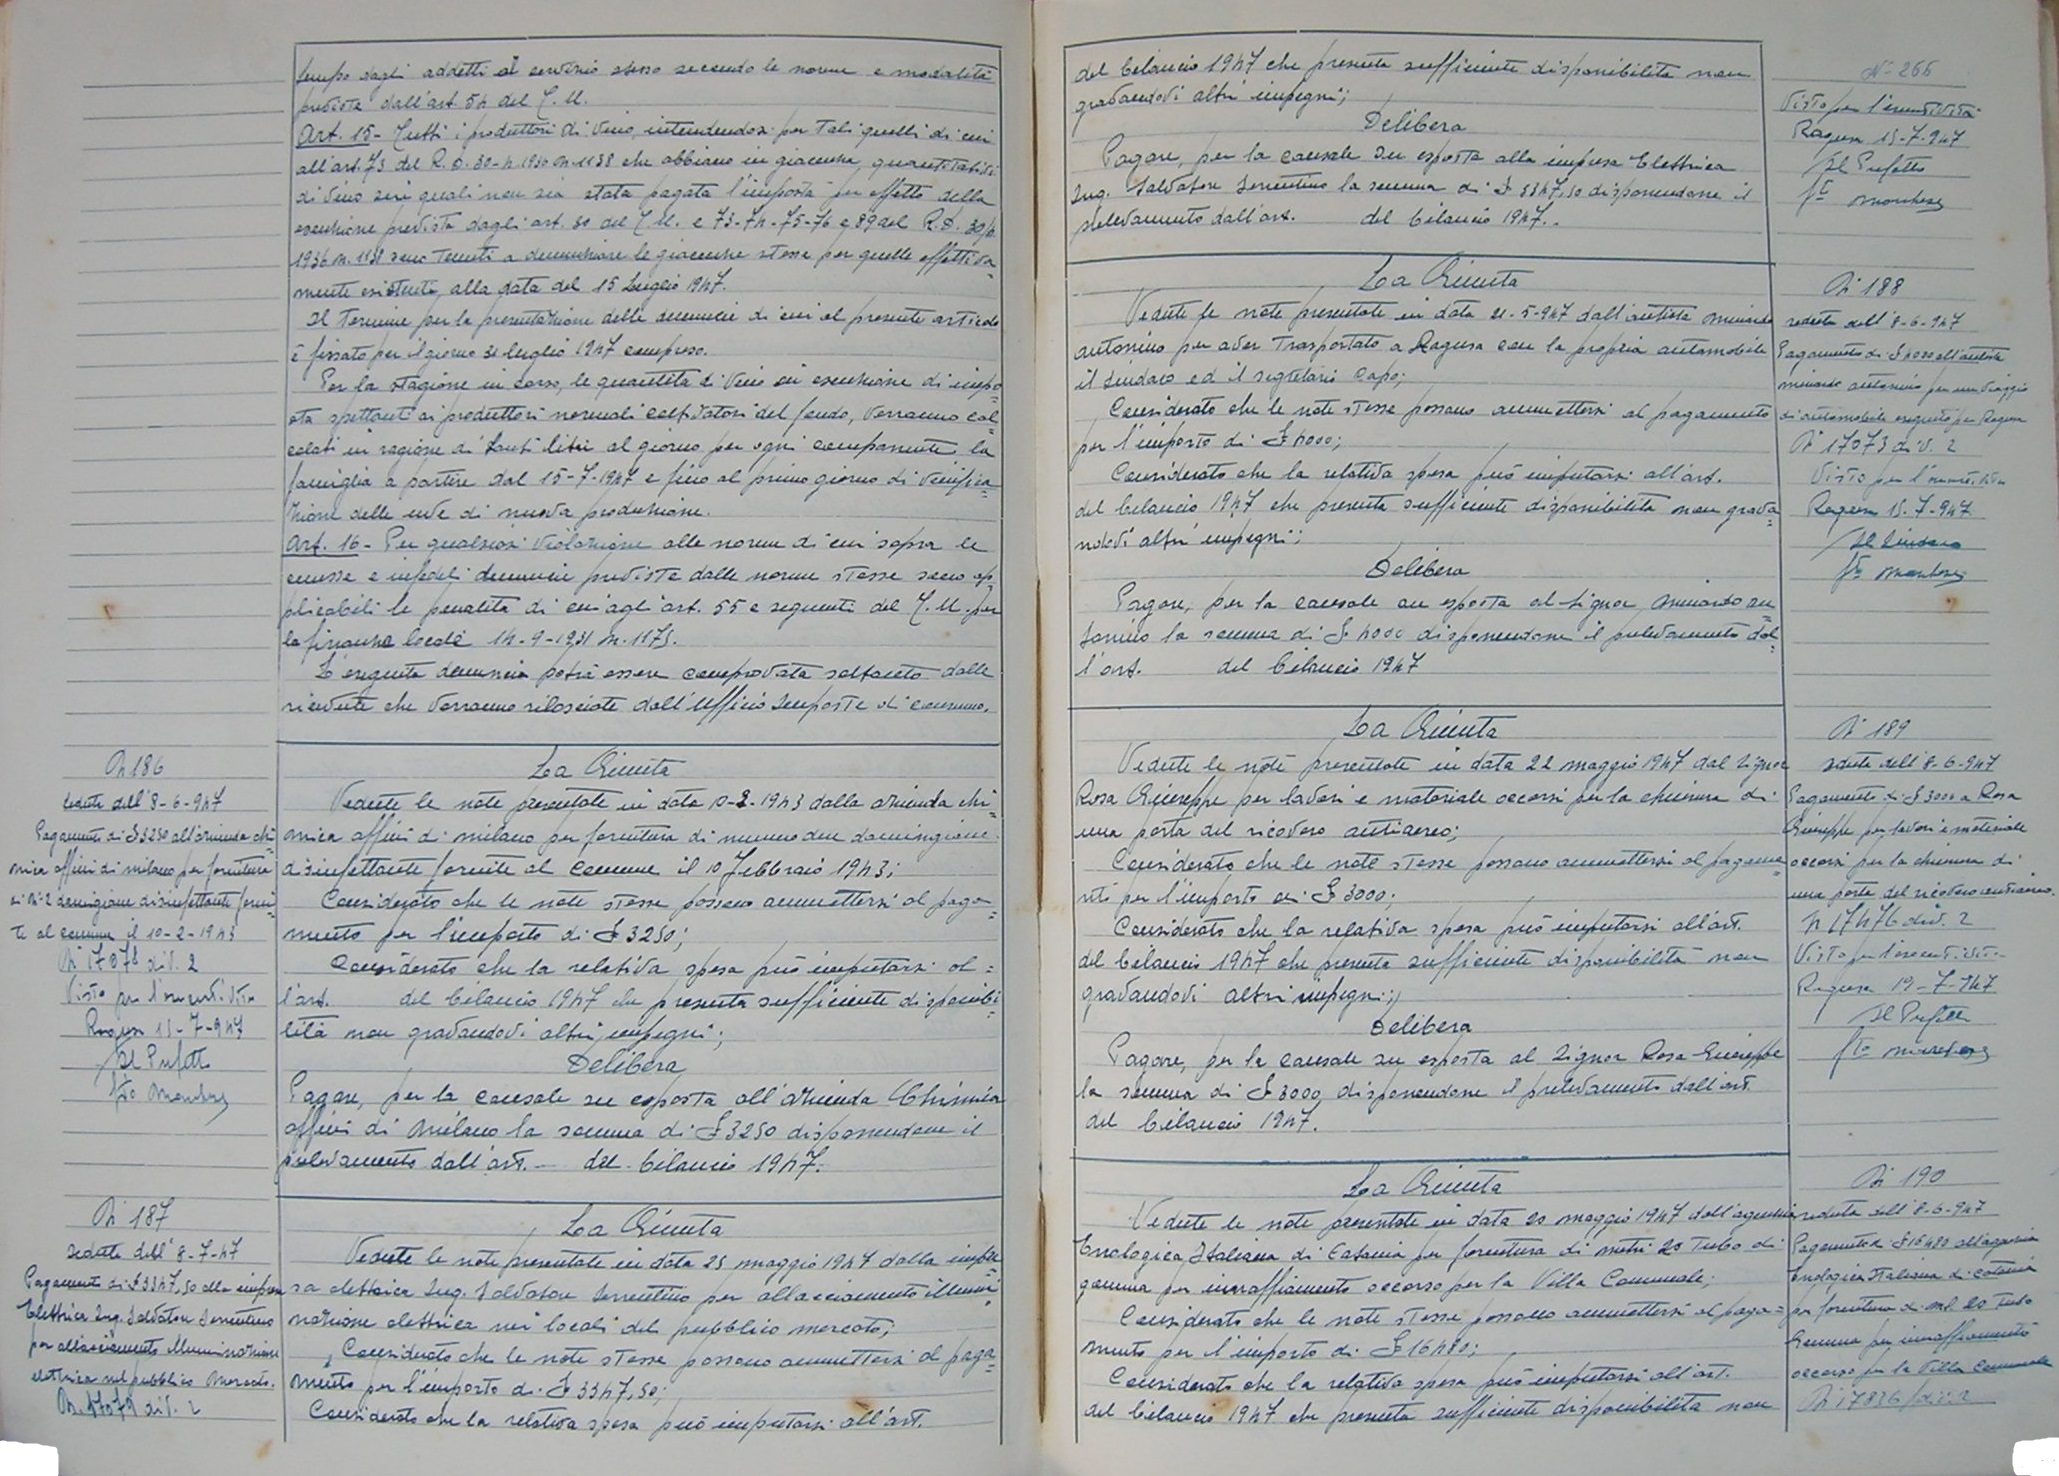 tempo dagli addetti al servizio stesso secondo le norme e modalità
previste dall'art. 54 del T. U.
Art. 15 - Tutti i produttori di vino, intendendosi per tali quelli di cui
all'art. 73 del R. D. 30-4-1936 N. 1138 che abbiano in giacenza, quantitativi
di vino sui quali non sia stata pagata l'imposta per effetto della
esenzione prevista dagli art. 30 del T. U. e 73-74-75-76 e 89 del R. D. 30/4
1936 N. 1138 sono tenuti a denunziare le giacenze stesse per quelle effettiva=
mente esistenti, alla data del 15 Luglio 1947.
Il termine per la presentazione delle denuncie di cui al presente articolo
è fissato per il giorno 31 luglio 1947 compreso.
Per la stagione in corso, le quantità di vino in esenzione di impo=
sta spettanti ai produttori normali coltivatori del fondo, verranno cal=
colati in ragione di tanti litri al giorno per ogni componente la
famiglia a partire dal 15-7-1947 e fino al primo giorno di vinifica=
zione delle uve di nuova produzione.
Art. 16 - Per qualsiasi violazione alle norme di cui sopra le
omesse e infedeli denuncie previste dalle norme stesse sono ap=
plicabili le penalità di cui agli art. 55 e seguenti del T. U. per
la finanza locale 14-9-1931 N. 1175.
L'eseguita denuncia potrà essere comprovata soltanto dalle
ricevute che verranno rilasciate dall'Ufficio Imposte di consumo.
N 186
seduta dell' 8-6-947
Pagamento di £ 3250 all'azienda chi=
mica affini di Milano per fornitura
di N. 2 damigiane disinfettante forni=
te al comune il 10-2-1943
N 17078 div. 2
Visto per l'esecutività
Ragusa 15-7-947
Il Prefetto
f.to
La Giunta
Vedute le note presentate in data 10-2-1943 dalla azienda chi=
mica affini di Milano per fornitura di numero due damigiane
disinfettante fornite al comune il 10 Febbraio 1943;
Considerato che le note stesse possono ammettersi al paga=
mento per l'importo di £ 3250;
Considerato che la relativa spesa può imputarsi al=
l'art. del bilancio 1947 che presenta sufficiente disponibi=
lità non gravandovi altri impegni;
Delibera
Pagare, per la causale su esposta all'azienda Chimica
affini di Milano la somma di £ 3250 disponendone il
prelevamento dall'art. — del bilancio 1947.
N 187
seduta dell' 8-7-47
Pagamento di £ 3347,50 alla impresa
Elettrica Ing. Salvatore Sorrentino
per allacciamento illuminazione
elettrica nel pubblico Mercato.
N. 17079 div. 2
La Giunta
Vedute le note presentate in data 25 maggio 1947 dalla impre=
sa elettrica Ing. Salvatore Sorrentino per allacciamento illumi=
nazione elettrica nei locali del pubblico mercato;
Considerato che le note stesse possono ammettersi al paga=
mento per l'importo di £ 3347,50;
Considerato che la relativa spesa può imputarsi all'art.
del bilancio 1947 che presenta sufficiente disponibilità non
gravandovi altri impegni;
Delibera
Pagare, per la causale su esposta alla impresa Elettrica
Ing. Salvatore Sorrentino la somma di £ 3347,50 disponendone il
prelevamento dall'art. del bilancio 1947.
N° 266
Visto per l'esecutività
Ragusa 15-7-947
Il Prefetto
f.to
La Giunta
Vedute le note presentate in data 21-5-947 dall'autista Minardo
Antonino per aver trasportato a Ragusa con la propria automobile
il Sindaco ed il segretario Capo;
Considerato che le note stesse possono ammettersi al pagamento
per l'importo di £ 4000;
Considerato che la relativa spesa può imputarsi all'art.
del bilancio 1947 che presenta sufficiente disponibilità non grava=
ndovi altri impegni;
Delibera
Pagare, per la causale su esposta al Signor Minardo An=
tonino la somma di £ 4000 disponendone il prelevamento dal=
l'art. del bilancio 1947
N 188
seduta dell' 8-6-947
Pagamento di £ 4000 all'autista
Minardo Antonino per un viaggio
di automobile eseguito per Ragusa
N 17073 div. 2
Visto per l'esecutività
Ragusa 15-7-947
Il Sindaco
f.to
La Giunta
Vedute le note presentate in data 22 maggio 1947 dal Signor
Rosa Giuseppe per lavori e materiale occorsi per la chiusura di
una porta del ricovero antiaereo;
Considerato che le note stesse possono ammettersi al pagame=
nto per l'importo di £ 3000;
Considerato che la relativa spesa può imputarsi all'art.
del bilancio 1947 che presenta sufficiente disponibilità non
gravandovi altri impegni;
Delibera
Pagare, per la causale su esposta al Signor Rosa Giuseppe
la somma di £ 3000 disponendone il prelevamento dall'art.
del bilancio 1947.
N 189
seduta dell' 8-6-947
Pagamento di £ 3000 a Rosa
Giuseppe per lavori e materiale
occorsi per la chiusura di
una porta del ricovero antiaereo.
N 17476 div. 2
Visto per l'esecutività
Ragusa 19-7-947
Il Prefetto
f.to
La Giunta
Vedute le note presentate in data 20 maggio 1947 dall'agenzia
Enologica Italiana di Catania per fornitura di metri 20 tubo di
gomma per innaffiamento occorso per la Villa Comunale;
Considerato che le note stesse possono ammettersi al paga=
mento per l'importo di £ 16480;
Considerato che la relativa spesa può imputarsi all'art.
del bilancio 1947 che presenta sufficiente disponibilità non
N 190
seduta dell' 8-6-947
Pagamento £ 16480 all'agenzia
Enologica Italiana di Catania
per fornitura di mt. 20 tubo
Gomma per innaffiamento
occorso per la Villa Comunale
N 17836 div. 2